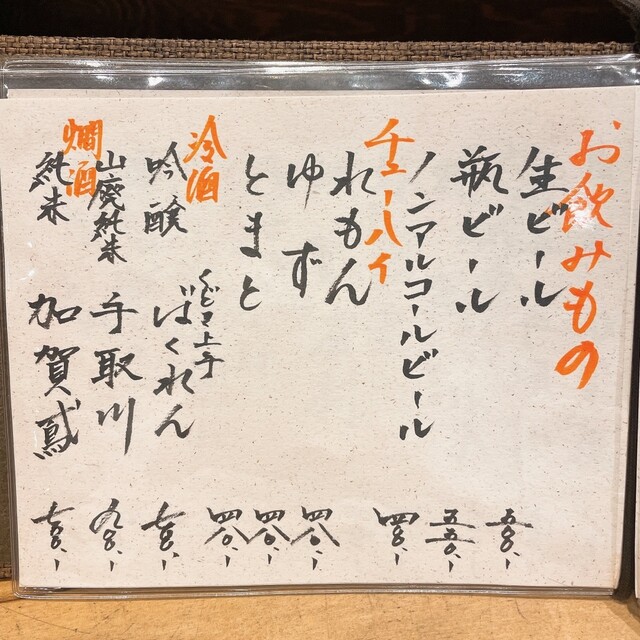 お飲みもの
生ビール 五〇〇、-
瓶ビール 五五〇、-
ノンアルコールビール 四〇〇、-
チューハイ
れもん 四八〇、-
ゆず 四八〇、-
とまと 四八〇、-
冷酒
吟醸 くどき上手 ばくれん 七〇〇、-
山廃純米 手取川 九〇〇、-
燗酒
純米 加賀鳶 七〇〇、-